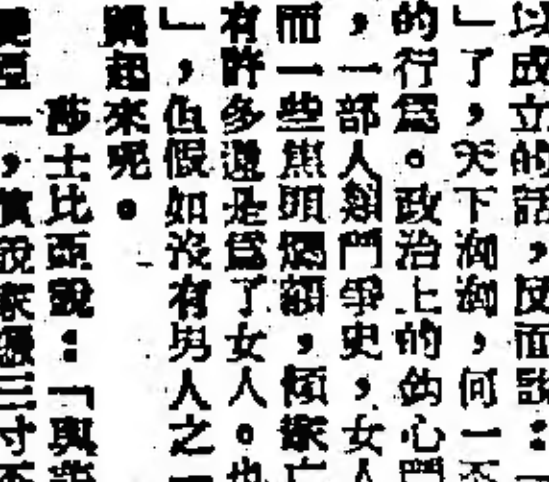 以成立的話,反面說:「
」了,天下洶洶,何一不
的行爲。政治上的鈎心鬥
,一部人類鬥爭史,女人
而一些焦頭爛額,傾家亡
有許多還是爲了女人。也
」,但假如沒有男人之一
鬧起來呢。
莎士比亞說:「與
一,說家憑三寸不